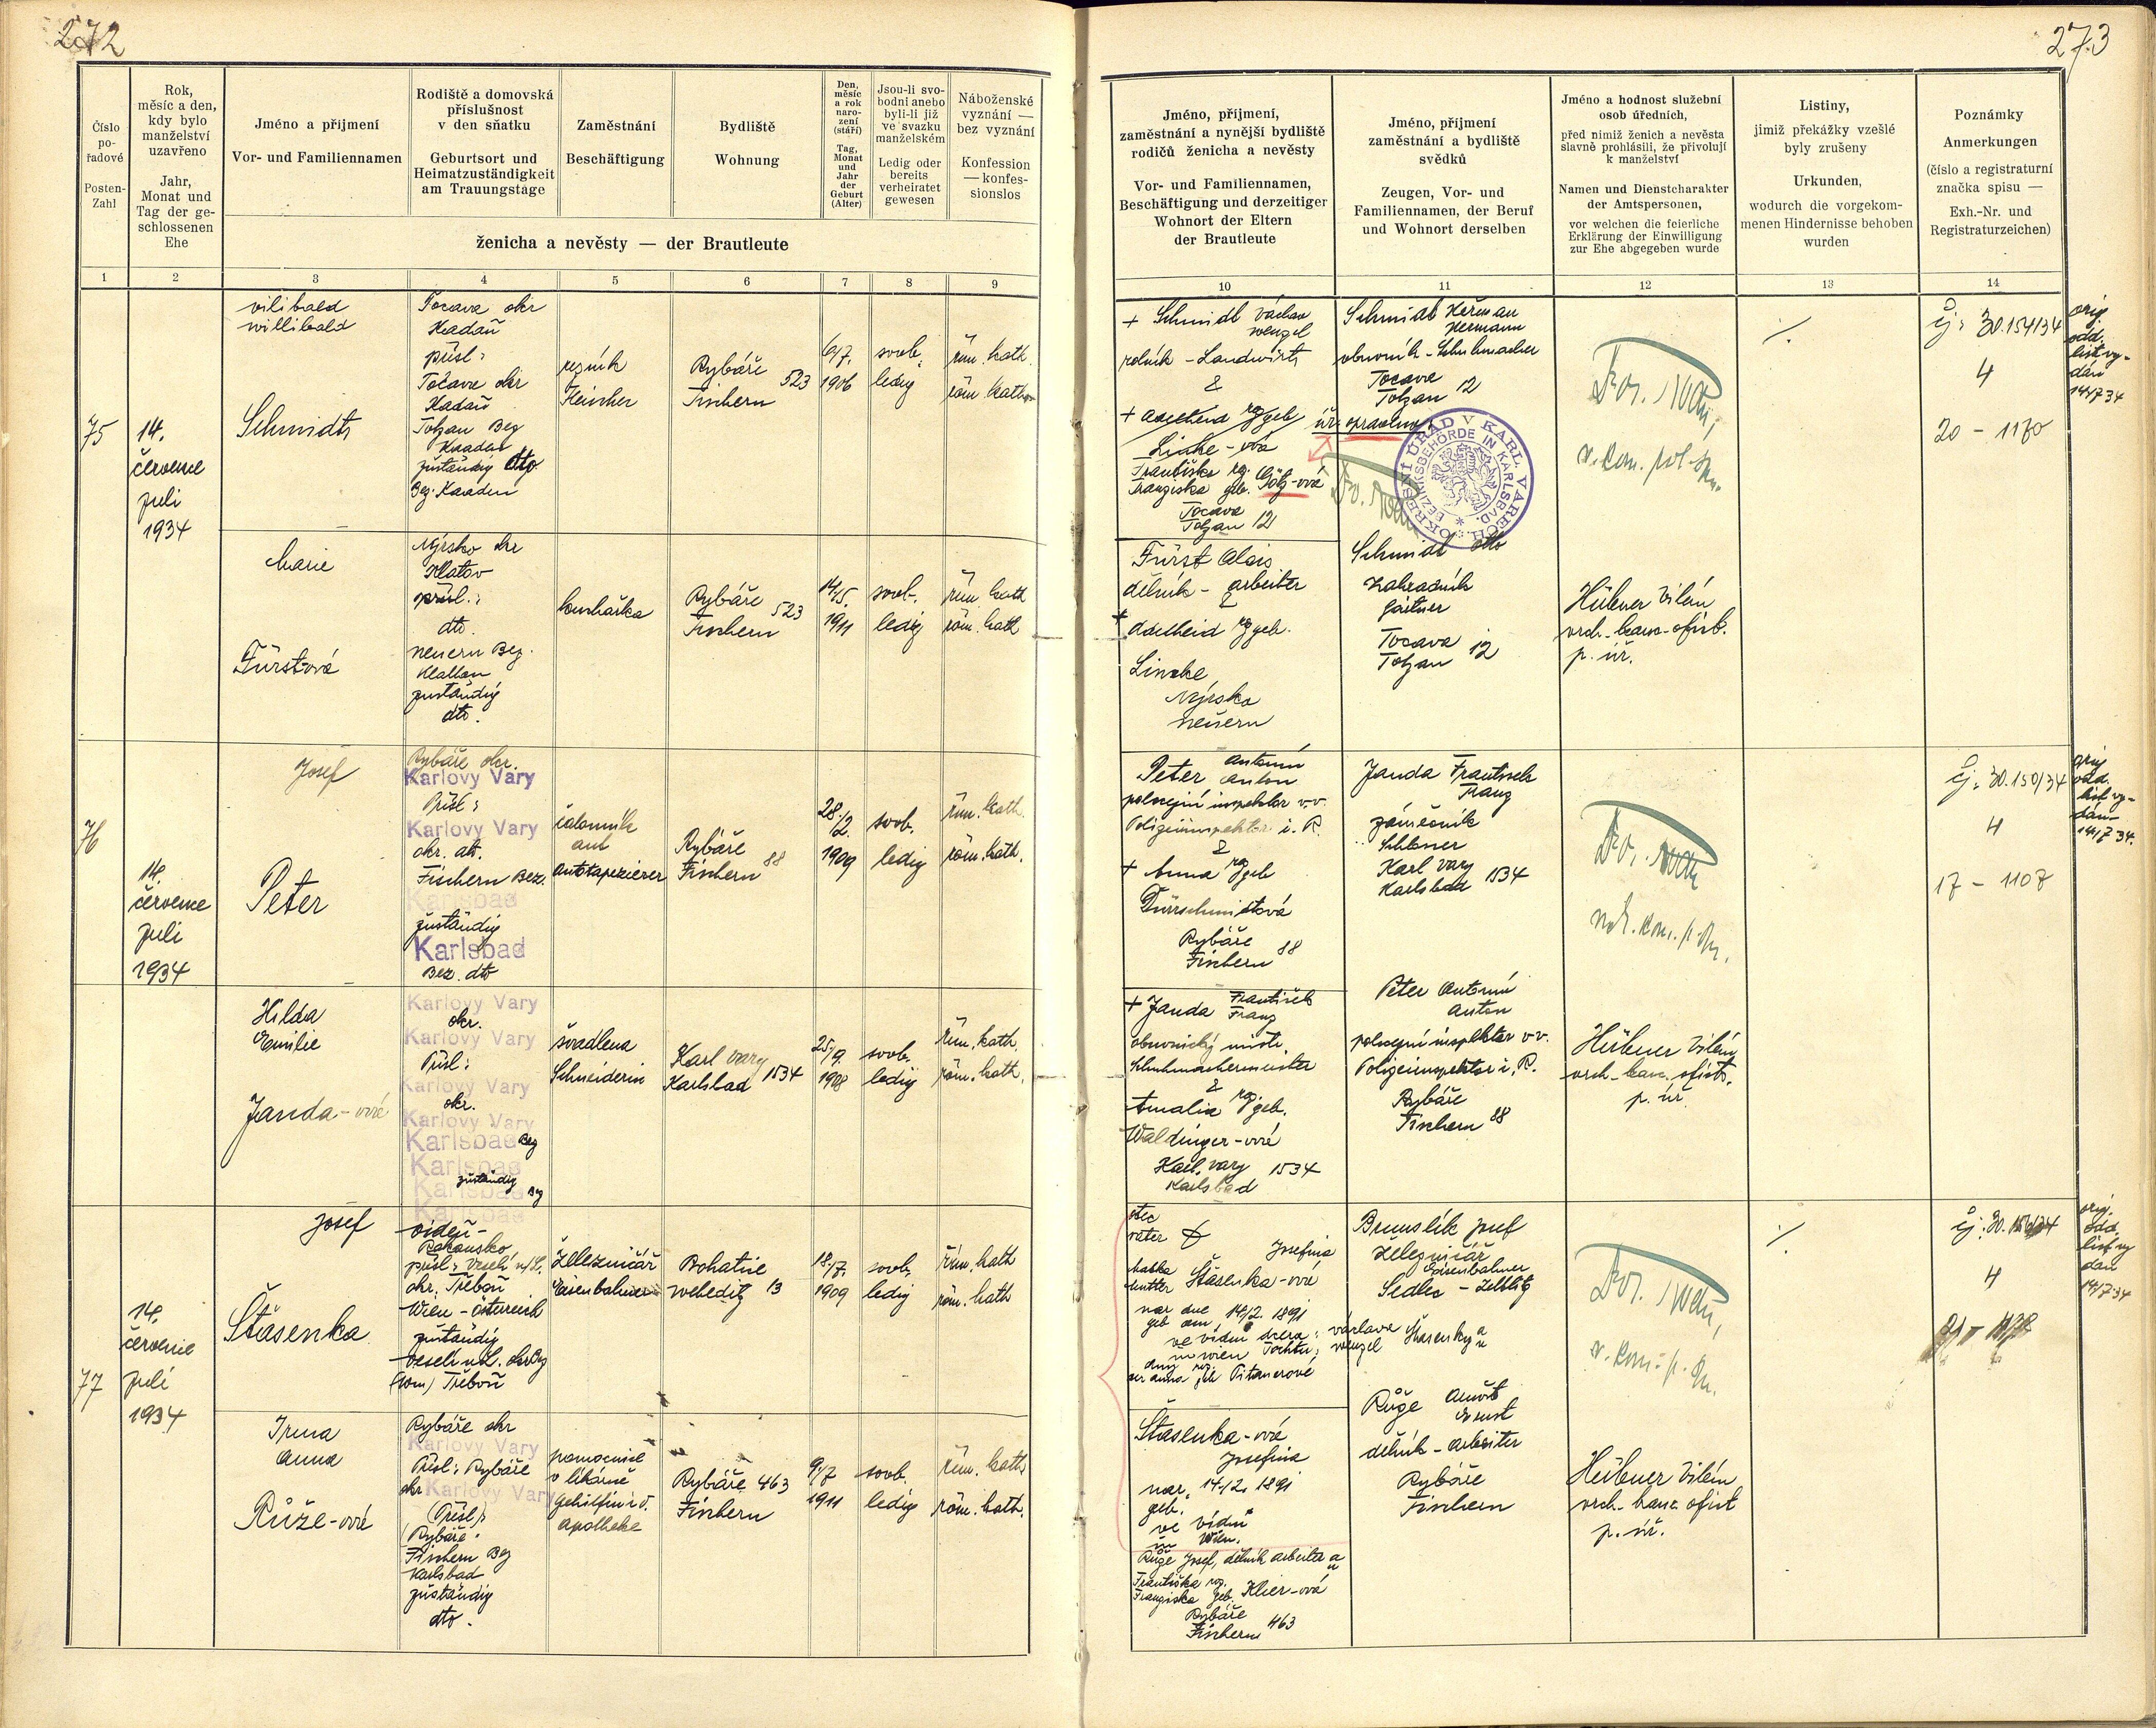 272
273
Číslo po-řadové
Posten-Zahl
Rok, měsíc a den, kdy bylo manželství uzavřeno
Jahr, Monat und Tag der ge-schlossenen Ehe
Jméno a přijmení
Vor- und Familiennamen
Rodiště a domovská příslušnost v den sňatku
Geburtsort und Heimatzuständigkeit am Trauungstage
Zaměstnání
Beschäftigung
Bydliště
Wohnung
Den, měsíc a rok naro-zení (stáří)
Tag, Monat und Jahr der Geburt (Alter)
Jsou-li svo-bodni anebo byli-li již ve svazku manželském
Ledig oder bereits verheiratet gewesen
Náboženské vyznání — bez vyznání
Konfession — konfes-sionslos
ženicha a nevěsty — der Brautleute
1 2 3 4 5 6 7 8 9
Jméno, příjmení, zaměstnání a nynější bydliště rodičů ženicha a nevěsty
Vor- und Familiennamen, Beschäftigung und derzeitiger Wohnort der Eltern der Brautleute
Jméno, příjmení zaměstnání a bydliště svědků
Zeugen, Vor- und Familiennamen, der Beruf und Wohnort derselben
Jméno a hodnost služební osob úředních,
před nimiž ženich a nevěsta slavně prohlásili, že přivolují k manželství
Namen und Dienstcharakter der Amtspersonen,
vor welchen die feierliche Erklärung der Einwilligung zur Ehe abgegeben wurde
Listiny,
jimiž překážky vzešlé byly zrušeny
Urkunden,
wodurch die vorgekom-menen Hindernisse behoben wurden
Poznámky
Anmerkungen
(číslo a registraturní značka spisu —
Exh.-Nr. und Registraturzeichen)
10 11 12 13 14
75
14.
července
juli
1934
vilibald
willibald
Schmidt
Tocava okr
Kadaň
přísl:
Točava okr
Kadaň
Totzan Bez
Kaaden
zuständig dtto
Bez. Kaaden
řezník
Fleischer
Rybáře
Fischern 523
6/7.
1906
svob.
ledig
řím. kath.
röm. kath.
+ Schmidt Václav
wenzel
rolník - Landwirt
&
+ Adelheid roz geb
Linke - ová
Františka roz.
Franziska geb. Götz-ová
Tocava
Totzan 12
Schmidt Heřman
Hermann
obuvník - Schuhmacher
Tocava
Totzan 12
úř. opraveno
OKRESNÍ ÚŘAD V KARL. VARECH
BEZIRKSBEHÖRDE IN KARLSBAD.
čj: 30.154/34
4
20 - 1170
orig.
odd.
list vy-
dán
14/7 34
Marie
Fürstová
Nýrsko okr
Klatov
přísl.:
dto.
neuern Bez.
Klattau
zuständig
dto.
kuchařka
Rybáře
Fischern 523
14/5.
1911
svob.
ledig
řím. kath
röm. kath
Fürst Alois
dělník - arbeiter
&
+ Adelheid roz geb.
Linake
Nýrsko
neuern
Schmidt Otto
zahradník
Gärtner
Tocava
Totzan 12
Hübner Vilém
vrch. kanc. ofic.
p. úř.
76
14.
července
juli
1934
Josef
Peter
Rybáře okr.
Karlovy Vary
Přísl:
Karlovy Vary
okr. dt.
Fischern Bez.
Karlsbad
zuständig
Karlsbad
Bez. dto
čalouník
aut
Autotapezierer
Rybáře
Fischern 88
28/2.
1909
svob.
ledig
řím. kath.
röm. kath.
Peter Antonín
Anton
policejní inspektor v.v.
Polizeiinspektor i. R.
&
+ Anna roz geb
Dürrschmidtová
Rybáře
Fischern 88
Janda František
Franz
zámečník
Schlosser
Karl. Vary
Karlsbad 1534
čj: 30.150/34
4
17 - 1107
orig
odd.
list vy-
dán
14/7 34.
Hilda
Emilie
Janda-ová
Karlovy Vary
okr.
Karlovy Vary
Přísl:
Karlovy Vary
okr.
Karlovy Vary
Karlsbad Bez
Karlsbad
zuständig
Karlsbad Bez
Karlsbad
švadlena
Schneiderin
Karl. Vary
Karlsbad 1534
25/9
1908
svob.
ledig
řím. kath.
röm. kath.
+ Janda František
Franz
obuvnický mistr
Schuhmachermeister
&
Amalia roz geb.
Waldinger-ová
Karl. Vary 1534
Karlsbad
Peter Antonín
Anton
policejní inspektor v.v.
Polizeiinspektor i. R.
Rybáře
Fischern 88
Hübner Vilém
vrch. kanc. ofict.
p. úř.
77
14.
července
juli
1934
Josef
Štasenka
Vídeň -
Rakousko
přísl: Veselí n/L.
okr. Třeboň
Wien - Österreich
zuständig
Veselí n L. okr Bez
Třeboň
Železničář
Eisenbahner
Bohatice
Weheditz 13
18/7.
1909
svob.
ledig
řím. kath
röm. kath
otec
vater
matka Josefina
mutter Štasenka-ová
nar dne
geb am 14/2. 1891
ve Vídni dcera: Václava
in Wien Tochter: Wenzel
Brumslík Josef
Železničář
Eisenbahner
Sedlec - Zettlitz
4
orig.
odd.
list vy
dán
14/7 34
Irma
Anna
Růže-ová
Rybáře okr
Karlovy Vary
Přísl: Rybáře
okr Karlovy Vary
(Přísl.):
(Rybáře.
Fischern Bez
Karlsbad
zuständig
dto.
pomocnice
v lékárně
Gehilfin i d.
Apotheke
Rybáře 463
Fischern
9/7
1911
svob.
ledig
řím. kath
röm. kath.
Štasenka-ová
Josefina
nar. 14./2. 1891
geb.
ve Vídni
in Wien.
Růže Josef, dělník arbeiter a
u
Františka roz.
Franziska geb. Klier-ová
Rybáře
Fischern 463
Růže Arnošt
Ernst
dělník - Arbeiter
Rybáře
Fischern
Hübner Vilém
vrch. kanc. ofict
p. úř.